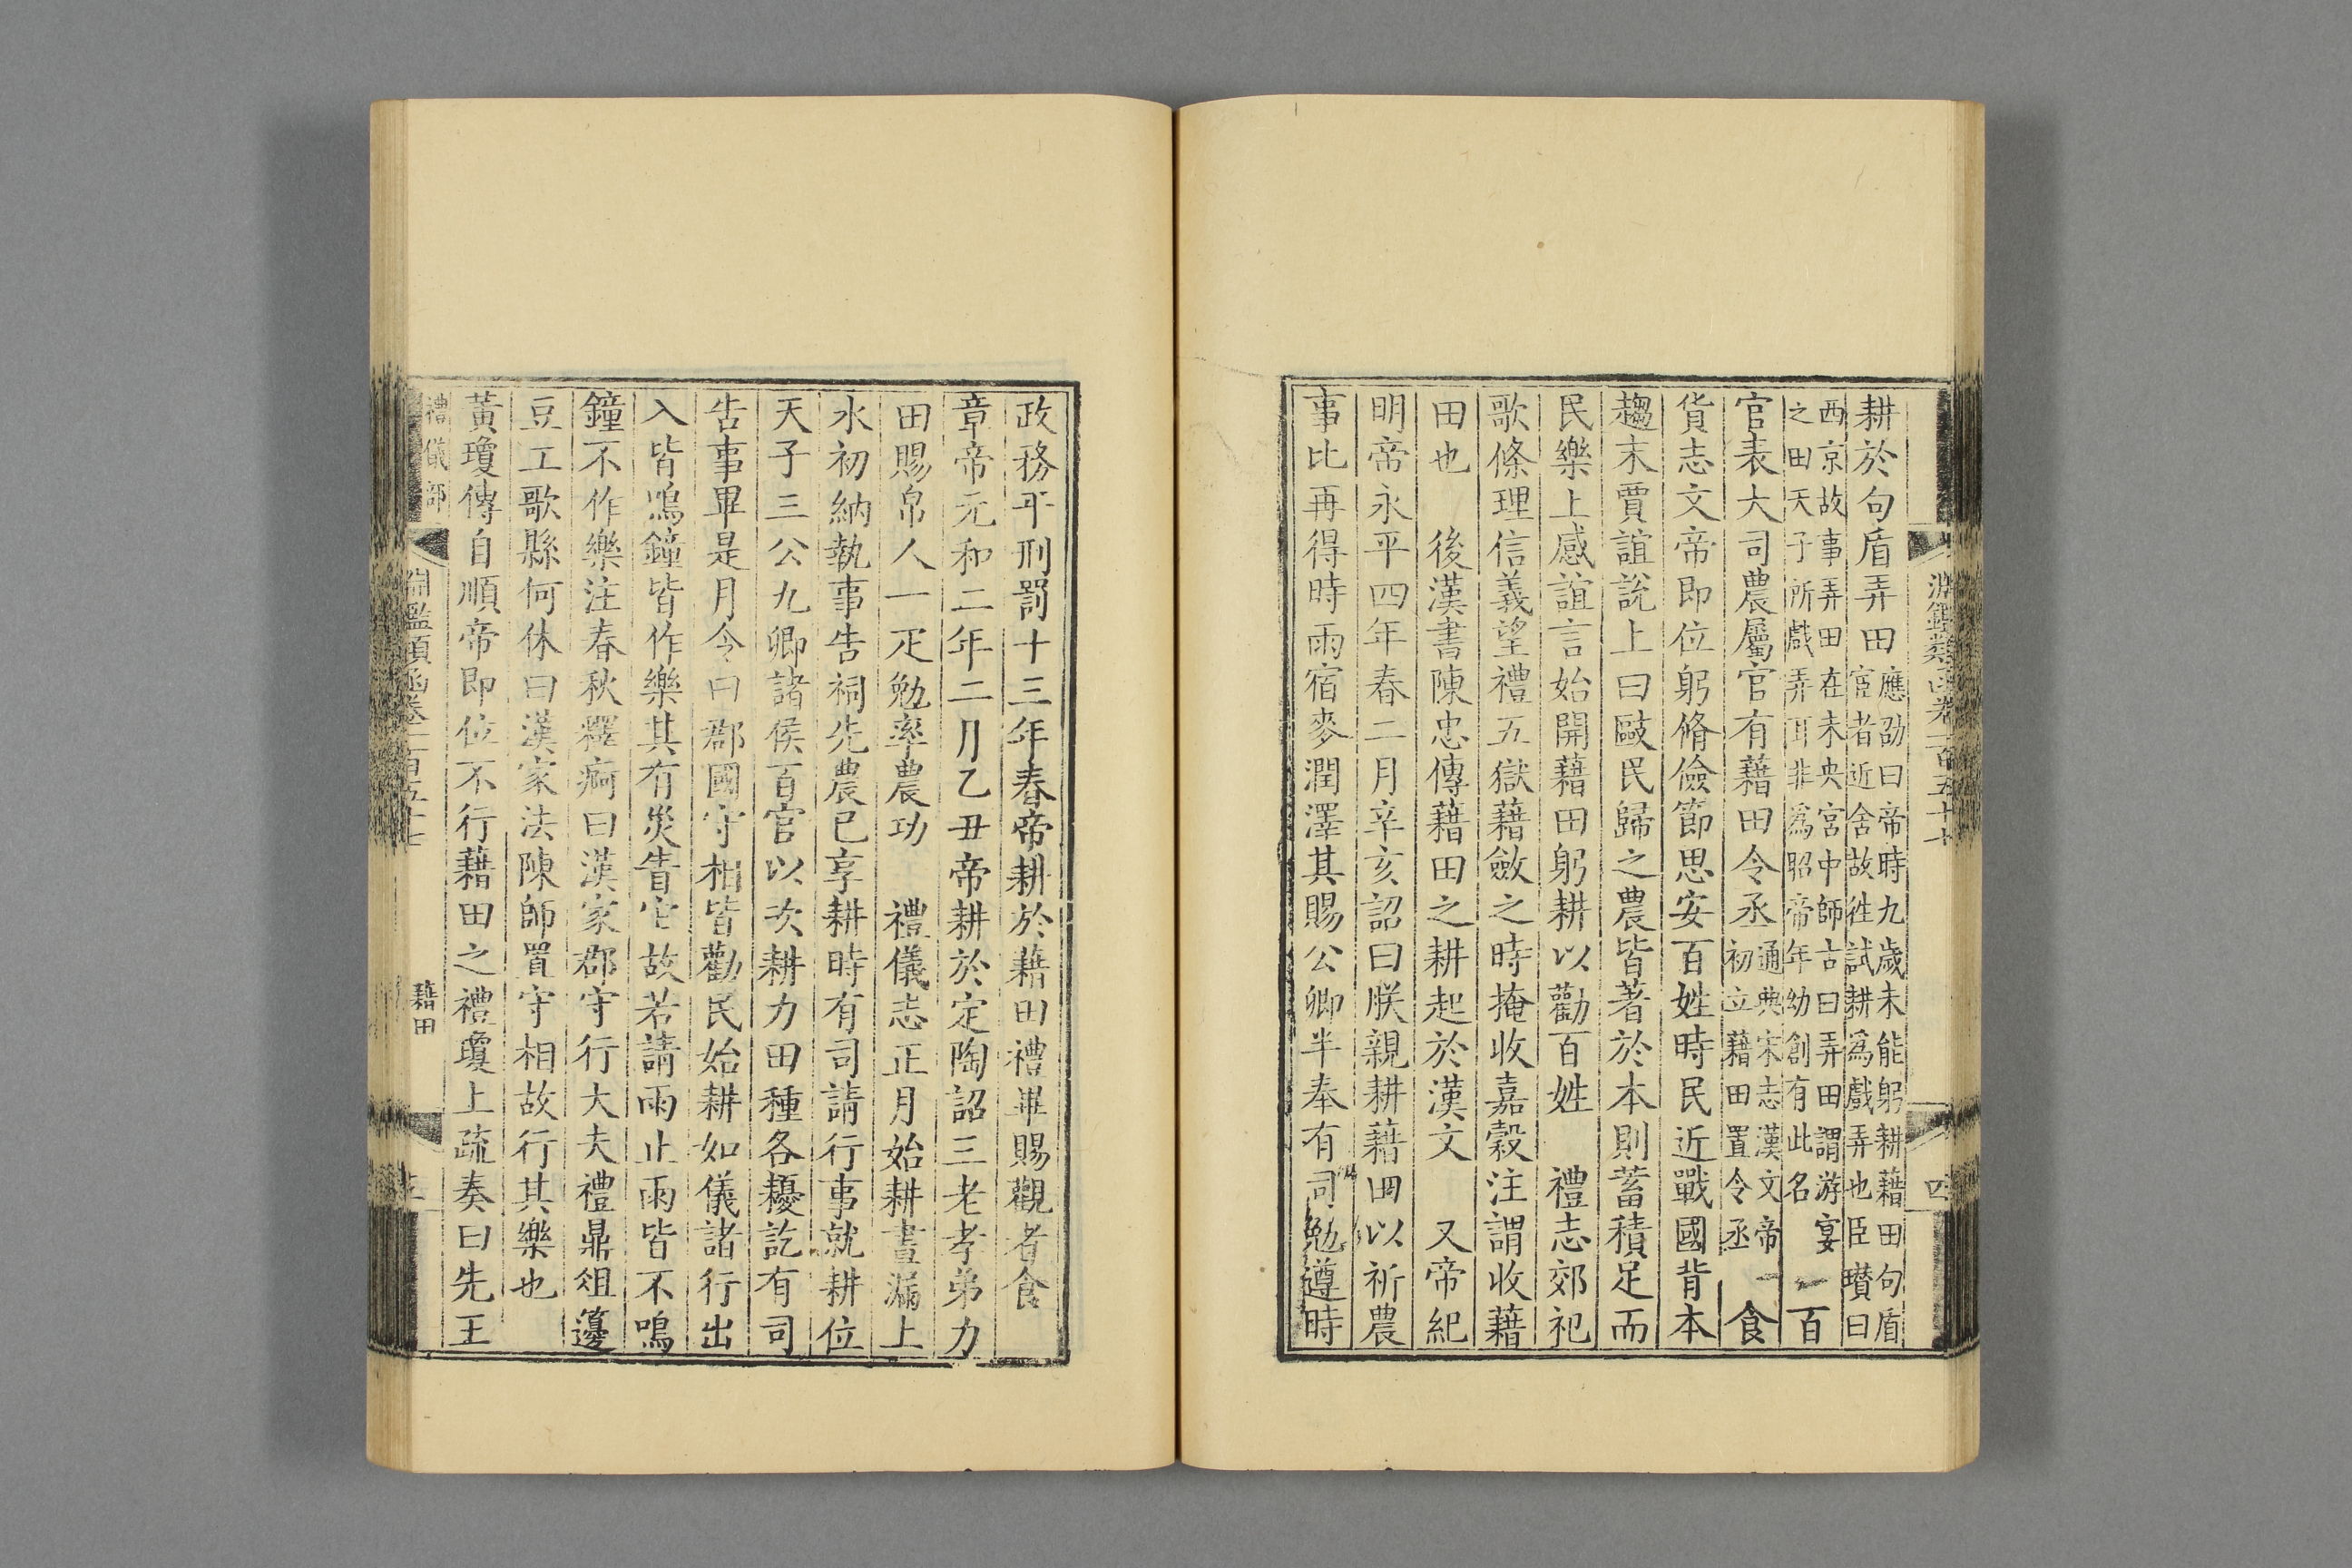 淵鑑類函卷一百五十七
四
耕於句盾弄田應劭曰帝時九歲未能躬耕藉田句盾
宦者近舍故徃試耕爲戲弄也臣瓚曰
西京故事弄田在未央宮中師古曰弄田謂游宴
之田天子所戲弄耳非爲昭帝年幼創有此名 百
官表大司農屬官有藉田令丞通典宋志漢文帝
初立藉田置令丞 食
貨志文帝即位躬脩儉節思安百姓時民近戰國背本
趨末賈誼說上曰敺民歸之農皆著於本則蓄積足而
民樂上感誼言始開藉田躬耕以勸百姓 禮志郊祀
歌條理信義望禮五嶽藉斂之時掩收嘉穀注謂收藉
田也 後漢書陳忠傳藉田之耕起於漢文 又帝紀
明帝永平四年春二月辛亥詔曰朕親耕藉田以祈農
事比再得時雨宿麥潤澤其賜公卿半奉有司勉遵時
政務平刑罰十三年春帝耕於藉田禮畢賜觀者食
章帝元和二年二月乙丑帝耕於定陶詔三老孝弟力
田賜帛人一疋勉率農功 禮儀志正月始耕晝漏上
水初納執事告祠先農已享耕時有司請行事就耕位
天子三公九卿諸侯百官以次耕力田種各耰訖有司
告事畢是月令曰郡國守相皆勸民始耕如儀諸行出
入皆鳴鐘皆作樂其有災眚它故若請雨止雨皆不鳴
鐘不作樂注春秋釋痾曰漢家郡守行大夫禮鼎俎籩
豆工歌縣何休曰漢家法陳師置守相故行其樂也
黃瓊傳自順帝即位不行藉田之禮瓊上疏奏曰先王
禮儀部
淵鑑類函卷一百五十七
藉田